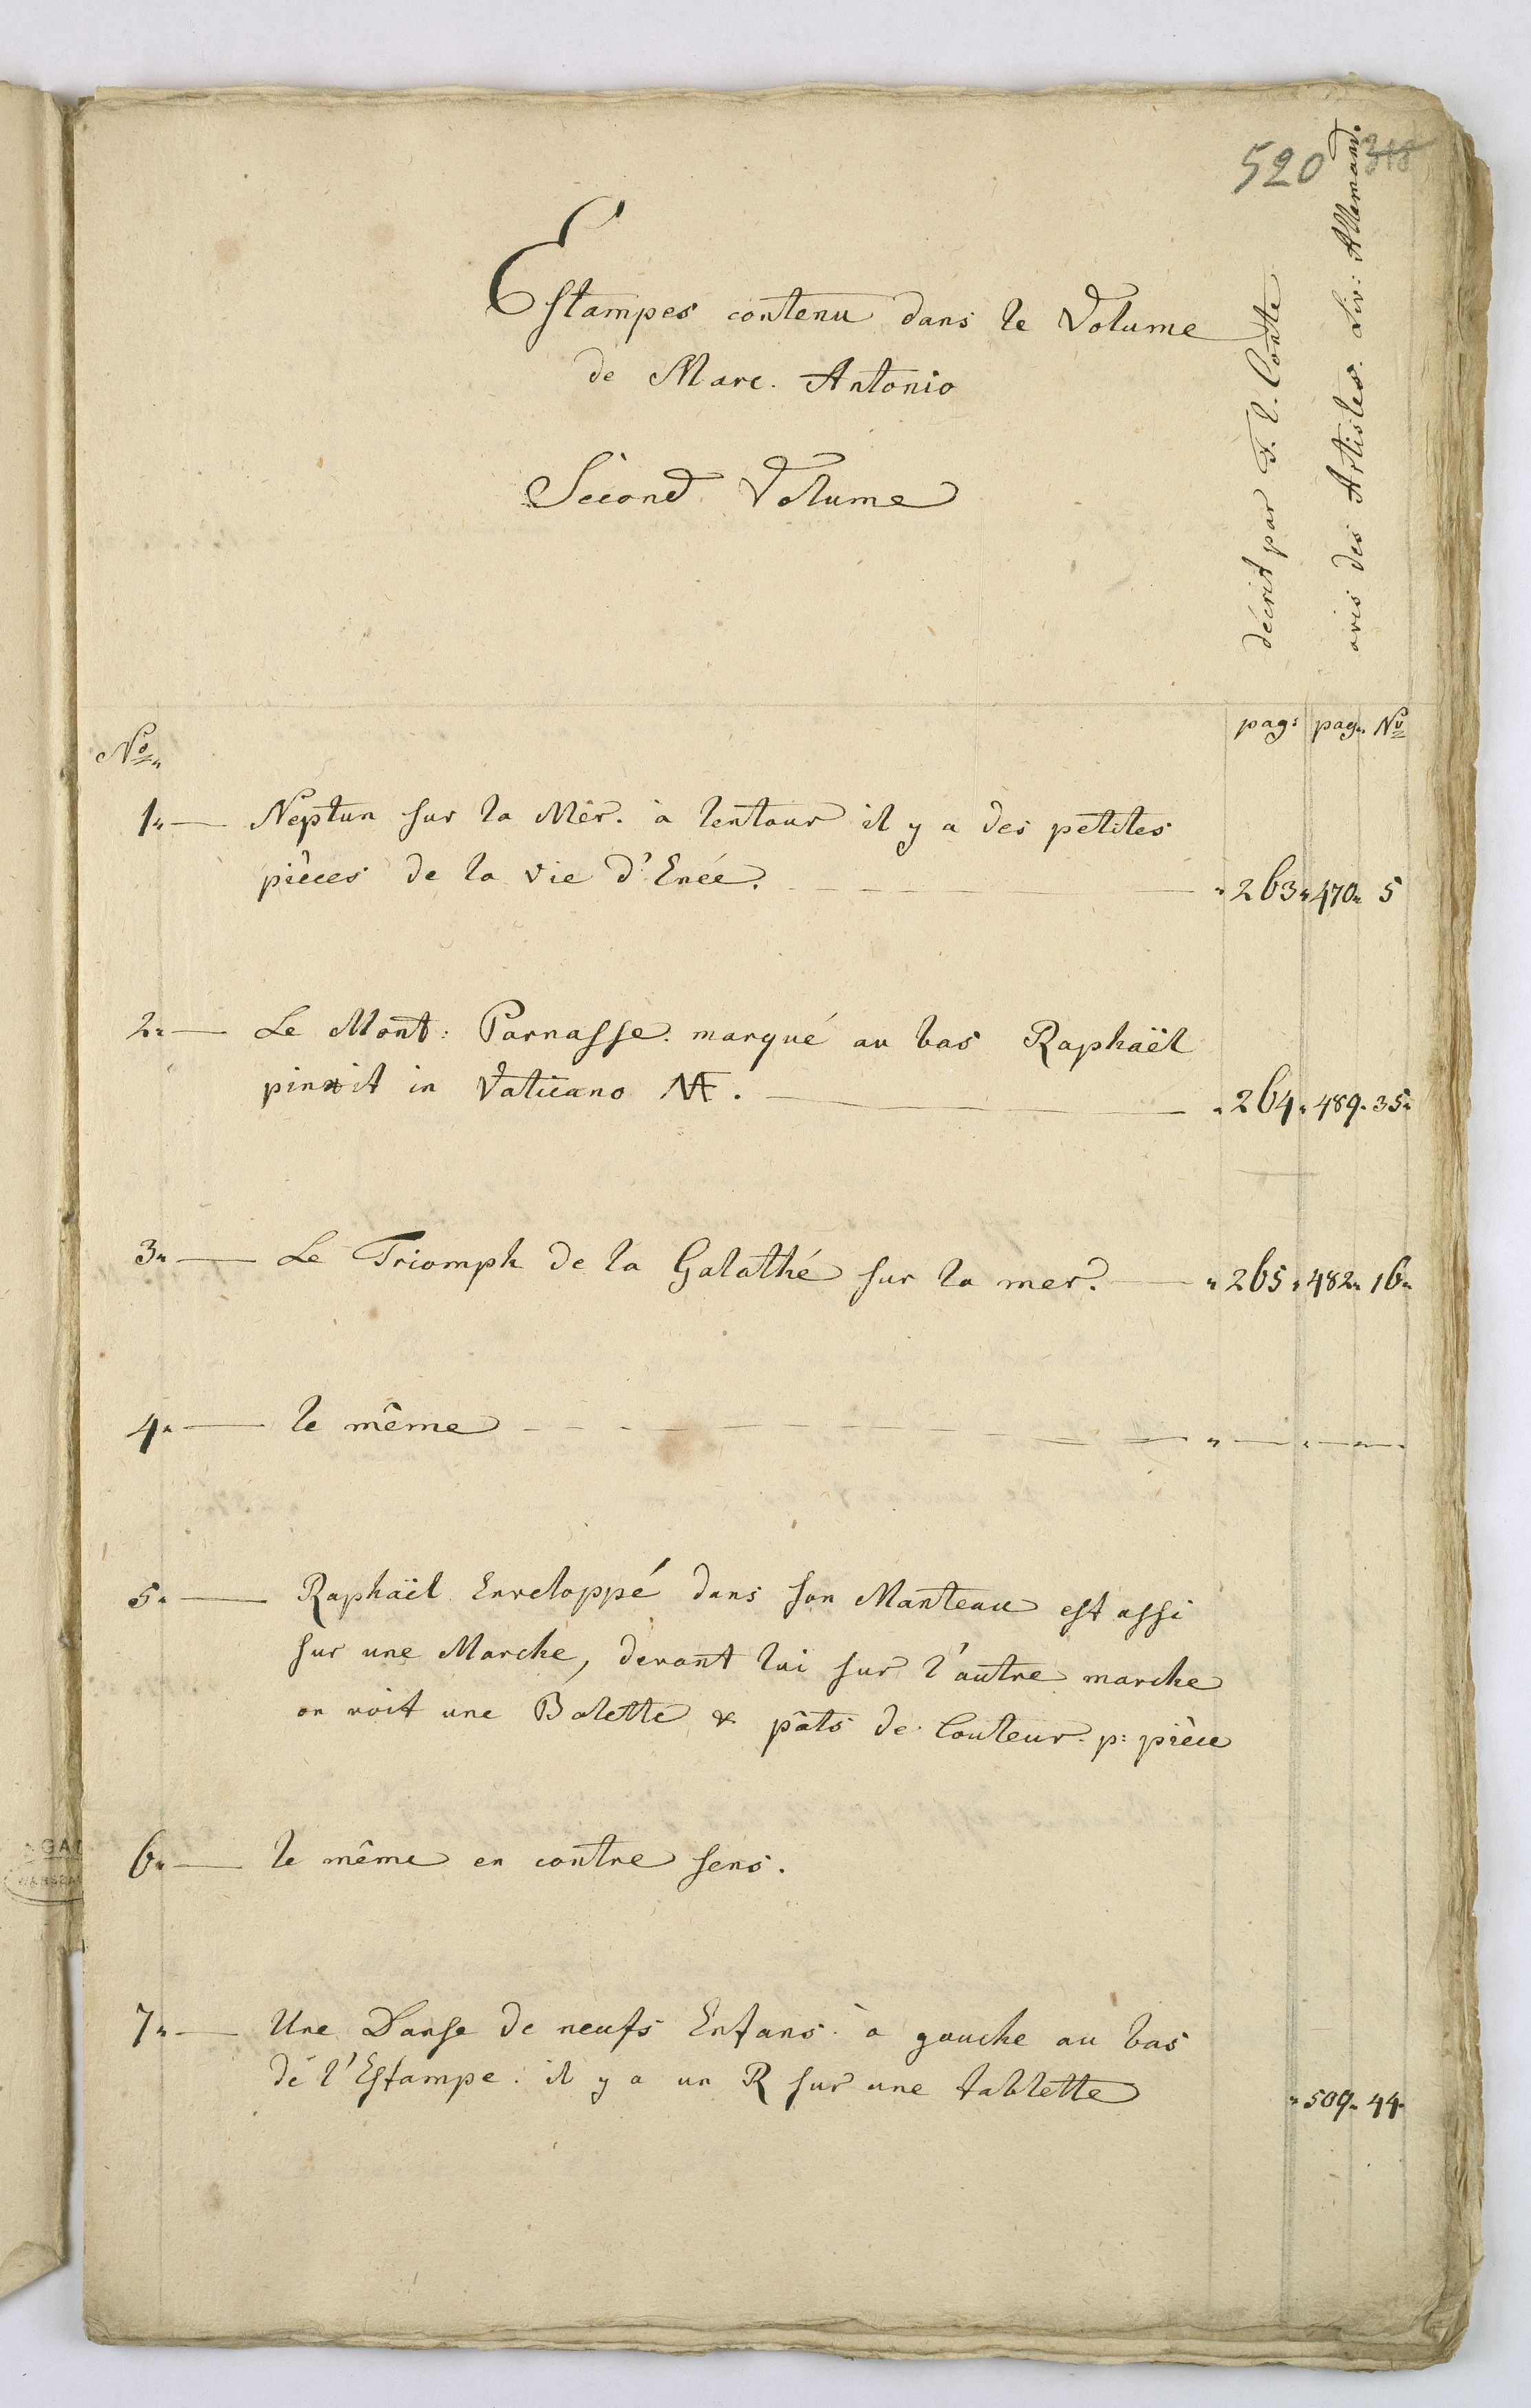 520 318
Estampes contenu dans le Volume
de Marc. Antonio
Second Volume
décrit par F. l. Conte
avis des Artistes. Liv: Allemand.
pag: pag. No
No
1 — Neptun sur la Mèr. à lentour il y a des petites
pièces de la vie d'Enée. 263 470 5
2 — Le Mont: Parnasse. marqué au bas Raphaël
pinxit in Vaticano MF. 264 489 35
3 — Le Triomph de la Galathé sur la mer. 265 482 16
4 — le même
5 — Raphaël Enveloppé dans son Manteau est assi
sur une Marche, devant lui sur l'autre marche
on voit une Balette & pâts de Couleur. p: pièce
6 — le même en contre sens.
7 — Une Danse de neufs Enfans. à gauche au bas
de l'Estampe. il y a un R sur une tablette 509 44